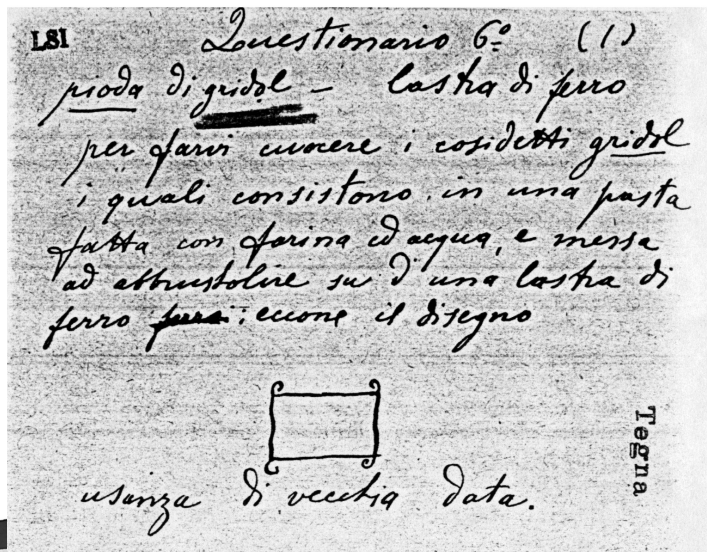 LSI
Questionario 6º (1)
pioda di gridol – lastra di ferro
per farvi cuocere i cosidetti gridol
i quali consistono in una pasta
fatta con farina ed acqua, e messa
ad abbrustolire su d'una lastra di
ferro : eccone il disegno
Tegna
usanza di vecchia data.